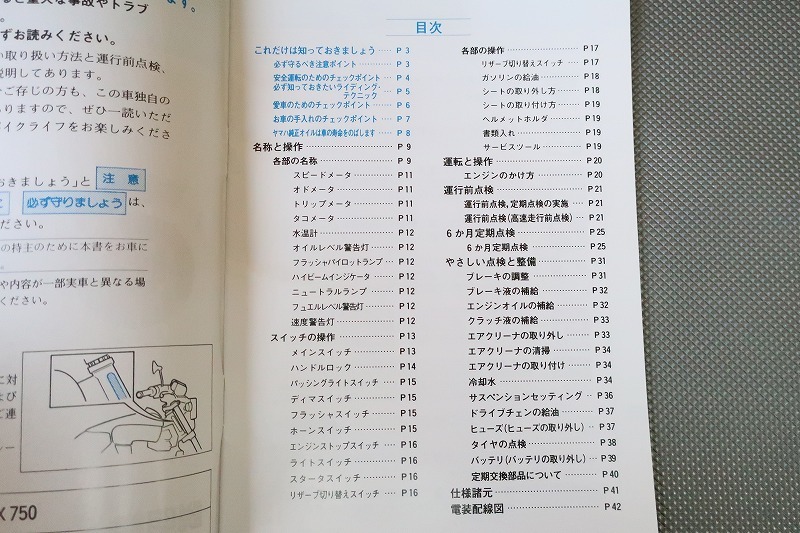 ると重大な事故やトラブ
ます。
ずお読みください。
い取り扱い方法と運行前点検、
説明してあります。
ご存じの方も、この車独自の
ありますので、ぜひ一読いただ
バイクライフをお楽しみくださ
おきましょう」と 注意
必ず守りましょう は、
ださい。
の持主のために本書をお車に
や内容が一部実車と異なる場
ください。
に対
よび
ご連
X750
目次
これだけは知っておきましょう…… P 3
必ず守るべき注意ポイント………… P 3
安全運転のためのチェックポイント…… P 4
必ず知っておきたいライディング・
テクニック…… P 5
愛車のためのチェックポイント…… P 6
お車の手入れのチェックポイント…… P 7
ヤマハ純正オイルは車の寿命をのばします…… P 8
名称と操作…… P 9
各部の名称…… P 9
スピードメータ…… P11
オドメータ…… P11
トリップメータ…… P11
タコメータ…… P11
水温計…… P12
オイルレベル警告灯…… P12
フラッシャパイロットランプ…… P12
ハイビームインジケータ…… P12
ニュートラルランプ…… P12
フュエルレベル警告灯…… P12
速度警告灯…… P12
スイッチの操作…… P13
メインスイッチ…… P13
ハンドルロック…… P14
パッシングライトスイッチ…… P15
ディマスイッチ…… P15
フラッシャスイッチ…… P15
ホーンスイッチ…… P15
エンジンストップスイッチ…… P16
ライトスイッチ…… P16
スタータスイッチ…… P16
リザーブ切り替えスイッチ…… P16
各部の操作…… P17
リザーブ切り替えスイッチ…… P17
ガソリンの給油…… P18
シートの取り外し方…… P18
シートの取り付け方…… P19
ヘルメットホルダ…… P19
書類入れ…… P19
サービスツール…… P19
運転と操作…… P20
エンジンのかけ方…… P20
運行前点検…… P21
運行前点検,定期点検の実施…… P21
運行前点検(高速走行前点検)…… P21
6か月定期点検…… P25
6か月定期点検…… P25
やさしい点検と整備…… P31
ブレーキの調整…… P31
ブレーキ液の補給…… P32
エンジンオイルの補給…… P32
クラッチ液の補給…… P33
エアクリーナの取り外し…… P33
エアクリーナの清掃…… P34
エアクリーナの取り付け…… P34
冷却水…… P34
サスペンションセッティング…… P36
ドライブチェンの給油…… P37
ヒューズ(ヒューズの取り外し)…… P37
タイヤの点検…… P38
バッテリ(バッテリの取り外し)…… P39
定期交換部品について…… P40
仕様諸元…… P41
電装配線図…… P42